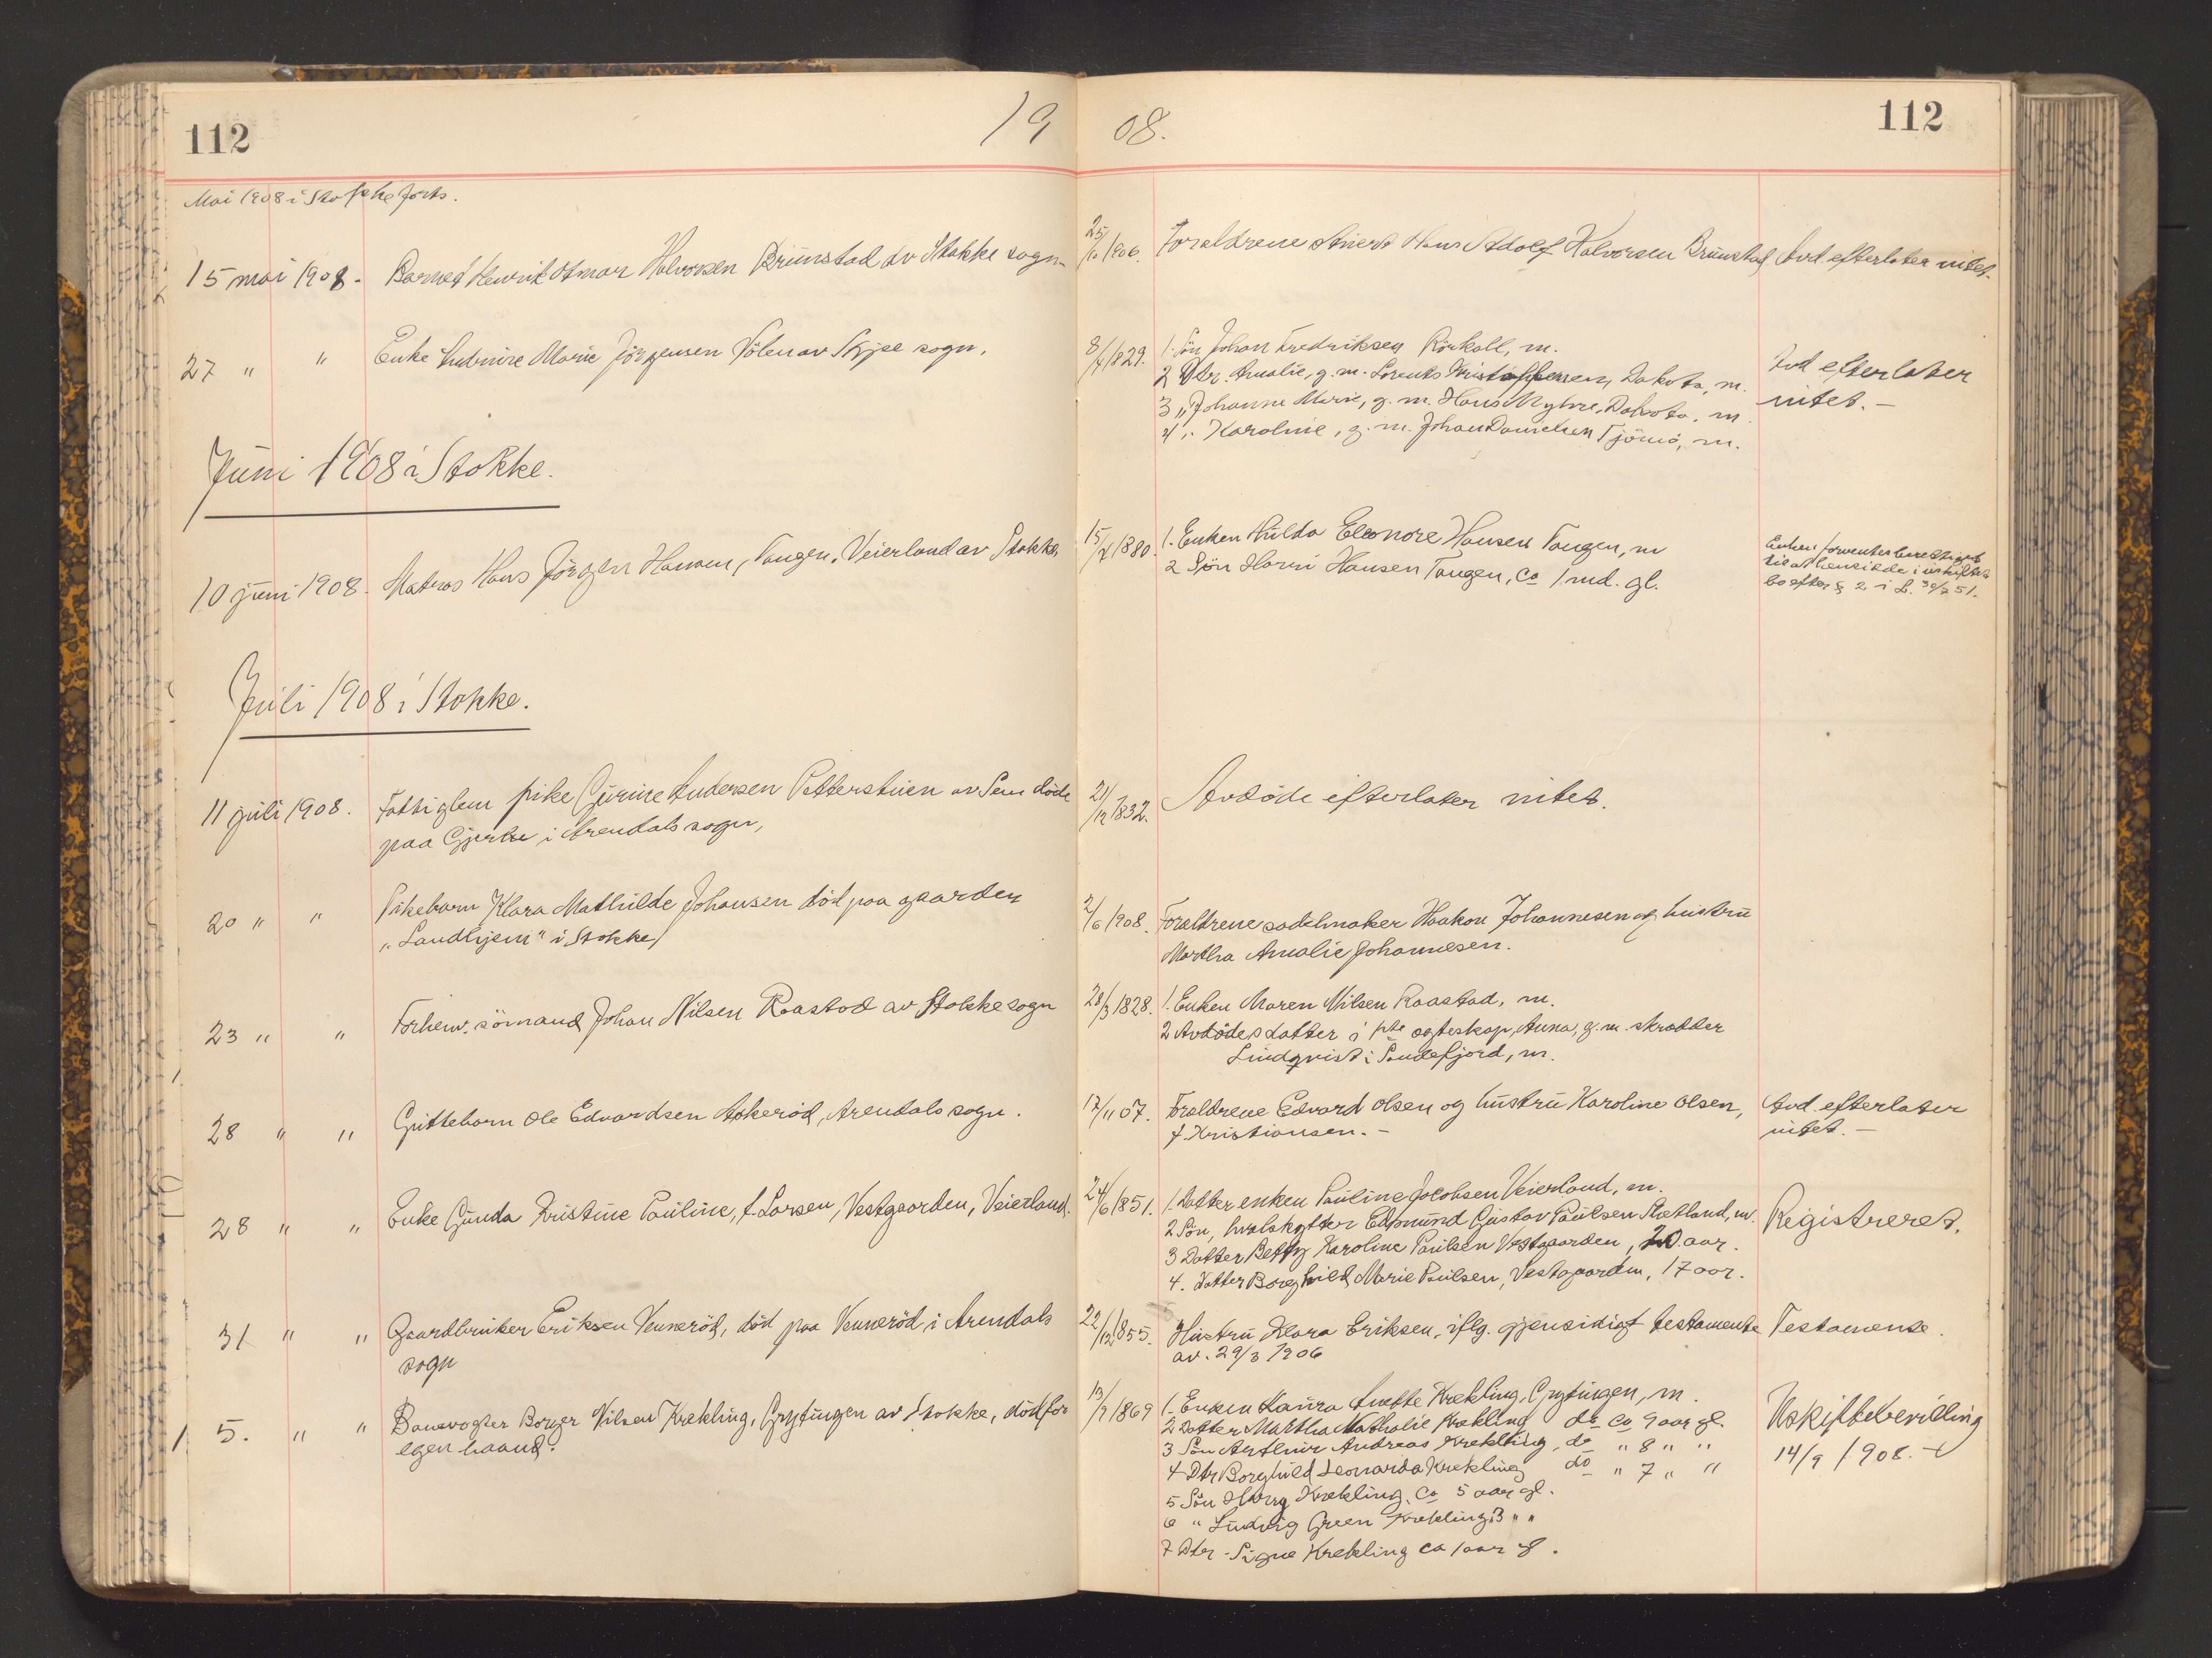 112
19 08.
112
Mai 1908 i Stokke forts.
15 mai 1908. Barnet Henrik Otmar Halvorsen Brunstad av Stokke sogn
25/10 1906. Foreldrene Hans Adolf Halvorsen Brunstad Avd. efterlater intet.
27 " " Enke Marie Jörgensen av sogn,
8/4 1829. 1. Sön Johan Fredriksen Rörkoll, m.
2 Dtr. Amalie, g. m. Lorents Kristoffersen, Dakota, m.
3 " Johanne Marie, g. m. Hans Myhre, Dakota, m
4 " Karoline, g. m. Johan Danielsen Tjömö, m.
Avd efterlater
intet. -
Juni 1908 i Stokke.
10 juni 1908. Matros Hans Jörgen Hansen, Tangen, Veierland av Stokke
15/4 1880. 1. Enken Hulda Eleonore Hansen Tangen, m
2 Sön Harri Hansen Tangen, ca 1 md. gl.
Enken forventer berettiget
til at hensidde i uskiftet
bo efter § 2 i L. 30/7 51.
Juli 1908 i Stokke.
11 juli 1908. Fattiglem pike Gurine Andersen Petterstuen av Sem döde
paa i Arendals sogn,
21/12 1832. Avdöde efterlater intet.
20 " " Pikebarn Klara Mathilde Johansen död paa gaarden
"Landhjem" i Stokke
2/6 1908. Foreldrene sadelmaker Haakon Johannesen og hustru
Martha Amalie Johannesen.
23 " " Forhenv. sömand Johan Nilsen Raastad av Stokke sogn
28/3 1828. 1. Enken Maren Nilsen Raastad, m.
2 Avdödes datter i 1ste egteskap, Anna, g. m. skrædder
Lindqvist i Sandefjord, m.
28 " " Guttebarn Ole Edvardsen Askeröd, Arendals sogn.
17/11 07. Foreldrene Edvard Olsen og hustru Karoline Olsen,
f. Kristiansen. -
Avd. efterlater
intet. -
28 " " Enke Gunda Kristine Pauline, f. Larsen, Vestgaarden, Veierland.
24/6 1851. 1. Datter enken Pauline Jacobsen Veierland, m.
2 Sön, hvalskytter Edmund Gustav Paulsen Shetland, m.
3 Datter Betty Karoline Paulsen Vestgaarden, 20 aar.
4. Datter Borghild Marie Paulsen, Vestgaarden, 17 aar.
Registreret.
31 " " Gaardbruker Eriksen Venneröd, död paa Venneröd i Arendals
sogn
22/12 1855. Hustru Klara Eriksen, iflg. gjensidigt testamente
av. 29/3 1906
Testamente.
5. " " Banevogter Borger Nilsen Krekling, Grytingen av Stokke, död for
egen haand.
13/9 1869 1. Enken Laura Anette Krekling, Grytingen, m.
2 Datter Martha Nathalie Krekling do ca 9 aar gl.
3 Sön Arthur Andreas Krekling, do " 8 " "
4 Dtr Borghild Leonarda Krekling do " 7 " "
5 Sön Harry Krekling, ca 5 aar gl.
6 " Ludvig Green Krekling, 3 " "
7 Dtr. Signe Krekling ca 1 aar gl.
Uskiftebevilling
14/9 1908.